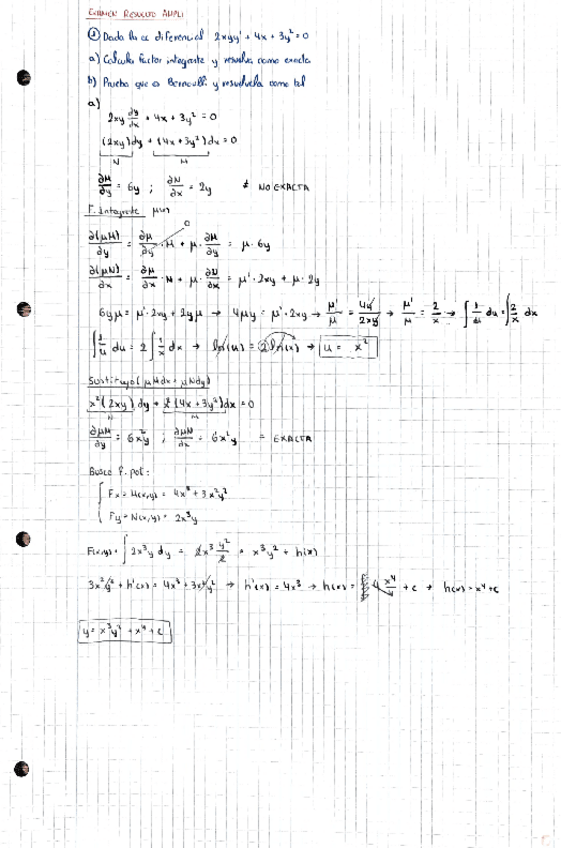 EXAMEN RESUELTO AMPLI
① Dada la ec diferencial 2xyy' + 4x + 3y² = 0
a) Calcula factor integrante y resuelve como exacta
b) Prueba que es Bernoulli y resuelvela como tal
a)
2xy dy/dx + 4x + 3y² = 0
(2xy)dy + (4x + 3y²)dx = 0
N M
∂M/∂y = 6y ; ∂N/∂x = 2y ≠ NO EXACTA
F. Integrante μ(x)
∂(μM)/∂y = ∂μ/∂y · M + μ · ∂M/∂y = μ · 6y
0
∂(μN)/∂x = ∂μ/∂x · N + μ · ∂N/∂x = μ' · 2xy + μ · 2y
6yμ = μ' · 2xy + 2yμ → 4μy = μ' · 2xy → μ'/μ = 4y/2xy → μ'/μ = 2/x → ∫ 1/u du = ∫ 2/x dx
∫ 1/u du = 2 ∫ 1/x dx → ln(u) = 2 ln(x) → u = x²
Sustituyo (μMdx + μNdy)
x²(2xy) dy + x²(4x + 3y²)dx = 0
N M
∂μM/∂y = 6x²y ; ∂μN/∂x = 6x²y = EXACTA
Busco F. pot:
Fx = M(x,y) = 4x³ + 3x²y²
Fy = N(x,y) = 2x³y
F(x,y) = ∫ 2x³y dy = 2x³ y²/2 = x³y² + h(x)
3x²y² + h'(x) = 4x³ + 3x²y² → h'(x) = 4x³ → h(x) = 4 x⁴/4 + c → h(x) = x⁴ + c
y = x³y² + x⁴ + c